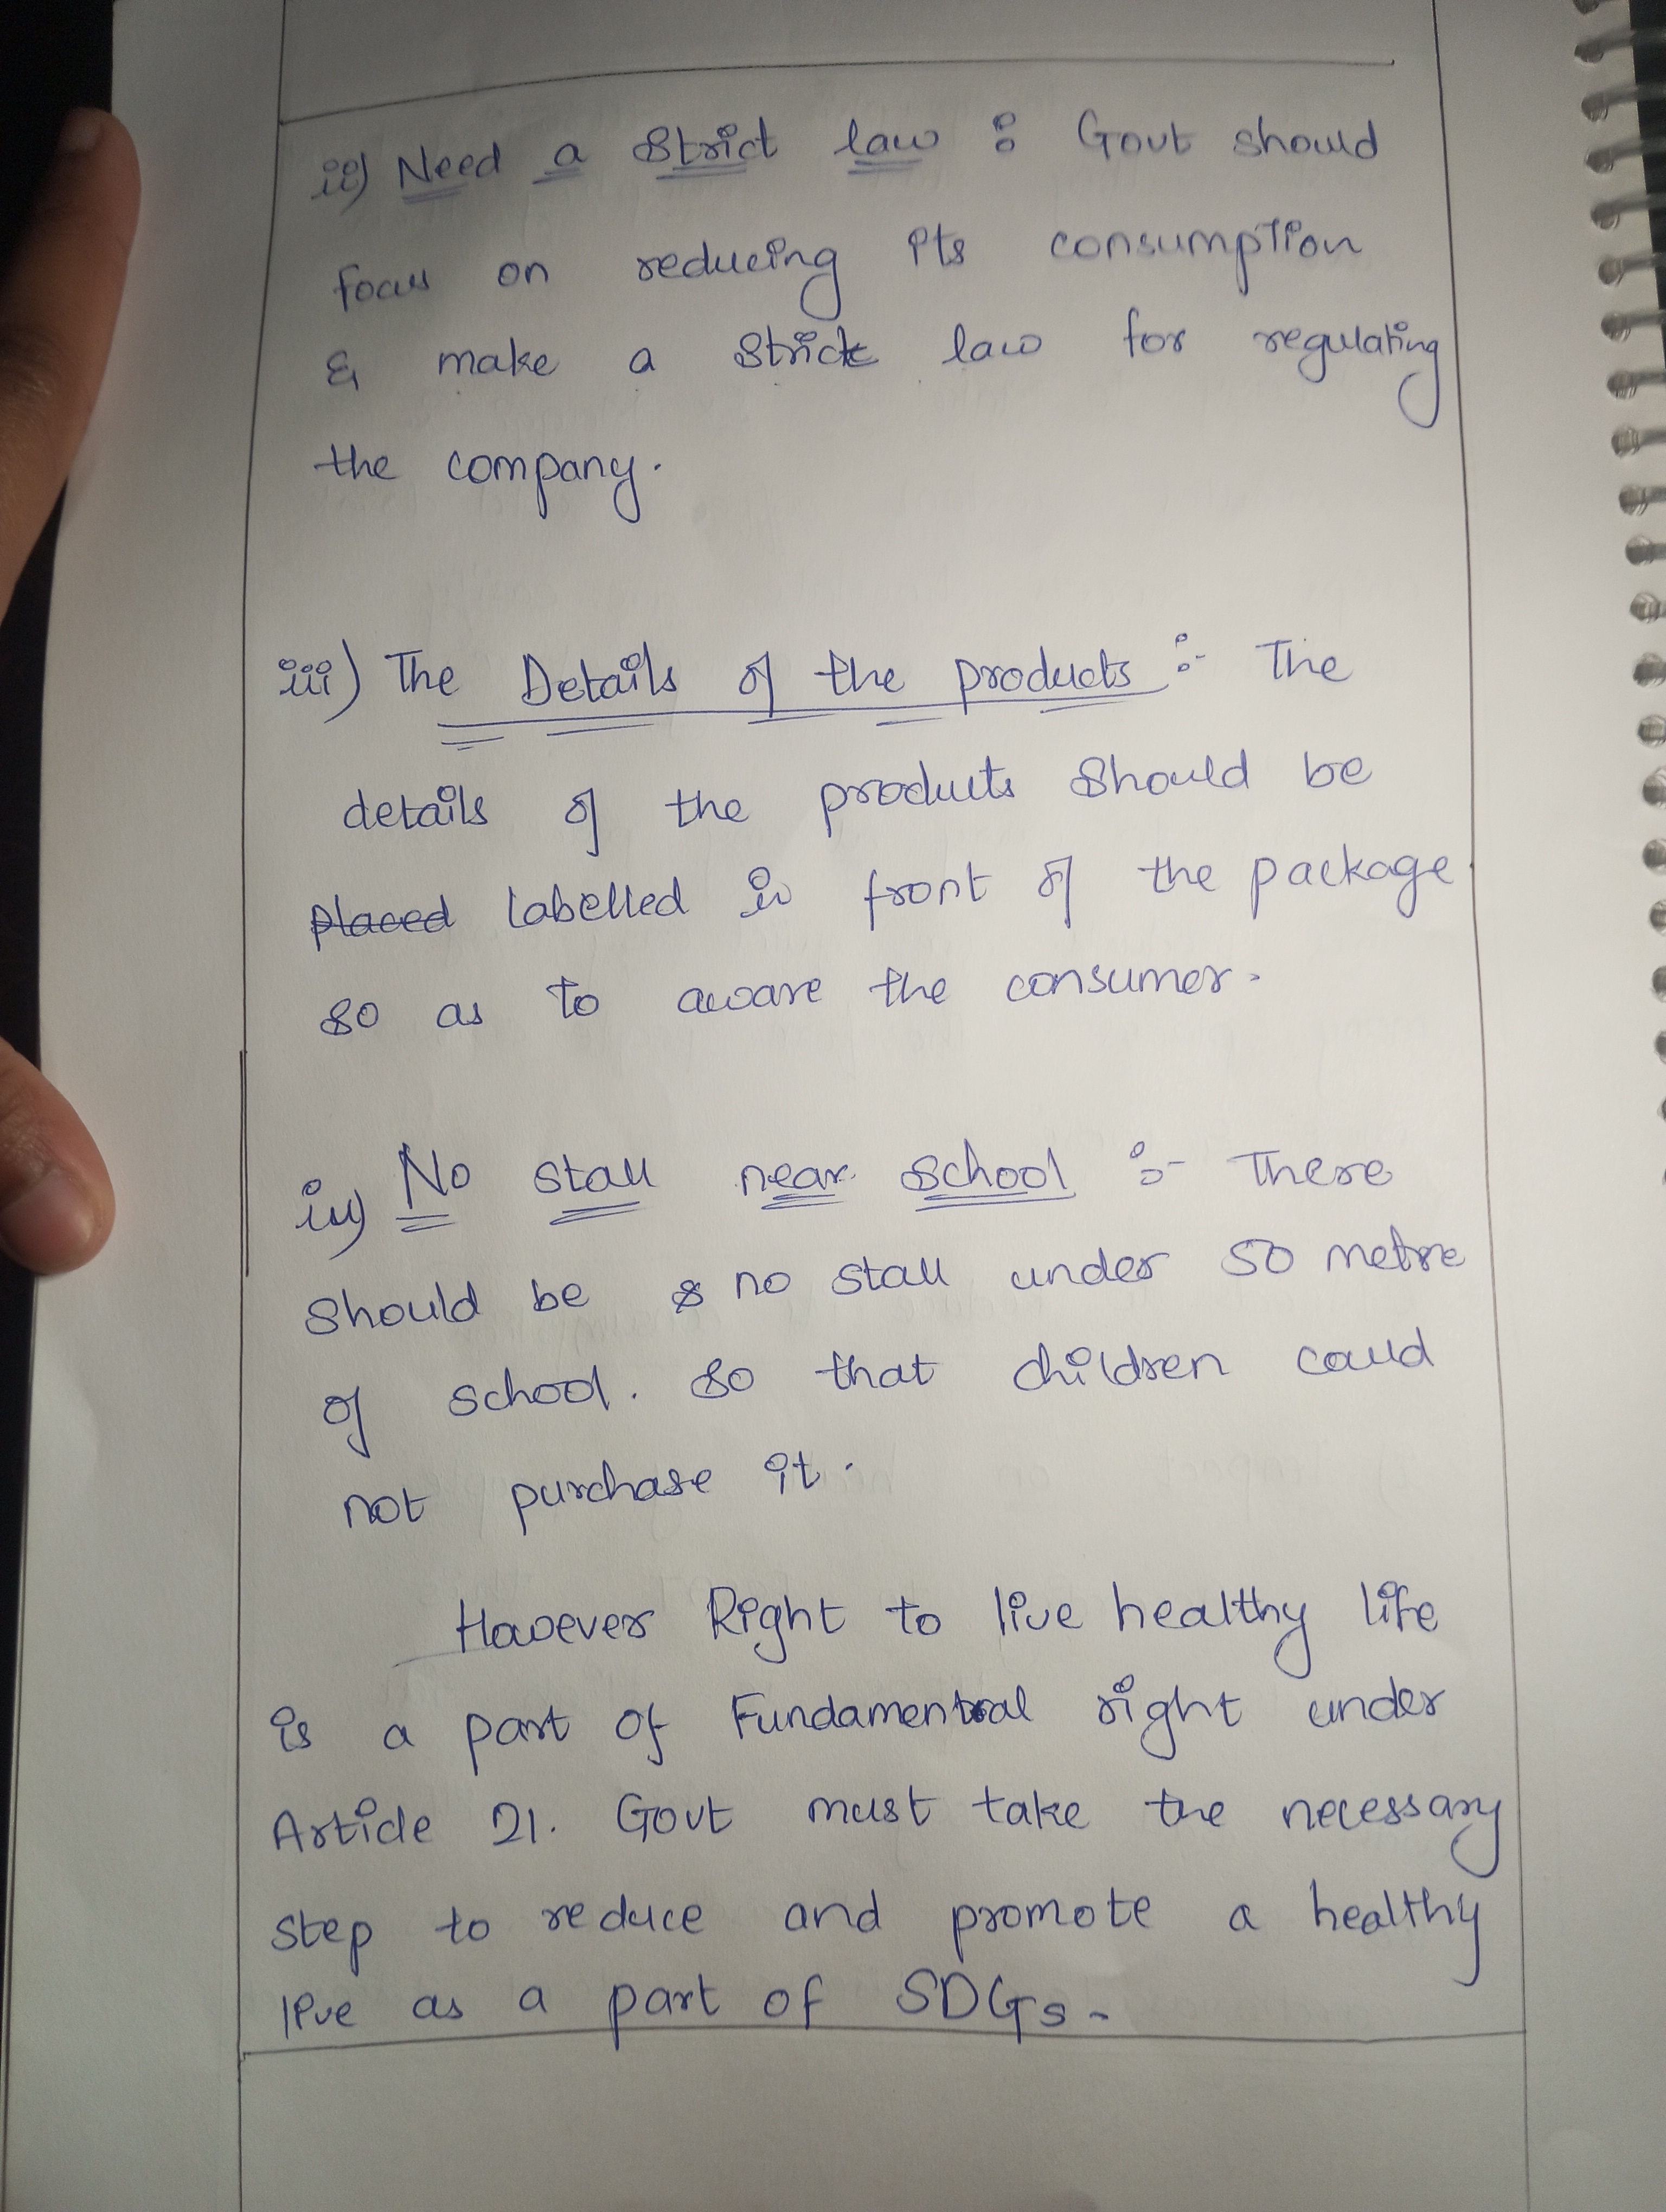 ii) Need a Strict law : Govt should
focus on reducing its consumption
& make a strict law for regulating
the company.
iii) The Details of the products :- The
details of the products should be
placed labelled in front of the package
so as to aware the consumer.
iv) No stall near School :- There
should be no stall under 50 metre
of school. So that children could
not purchase it.
However Right to live healthy life
is a part of Fundamental right under
Article 21. Govt must take the necessary
step to reduce and promote a healthy
live as a part of SDGs.